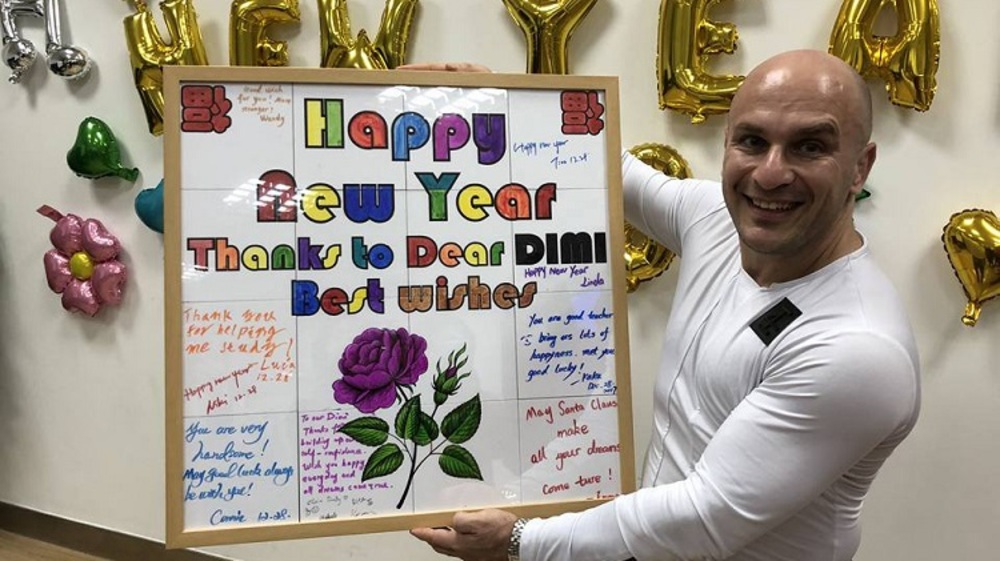 NEW YEA
福
Good wish
for you! New
manager!
Wendy
Happy
福
Happy new year
Tim 12.28
New Year
Thanks to Dear DIMI
Happy New Year
Linda
Best wishes
Thank you
for helping
me study!
Lucia
12.28
Happy new year
12.28
You are good teacher
bring us lots of
happyness. met you
good lucky!
Keke
Dec.28.
2017
You are very
handsome!
May good luck always
be with you!
Connie 12.28.
To our Dimi
Thanks for
building up our
self-confidence.
Wish you happy
everyday and
all dreams come true.
May Santa Claus
make
all your dreams
come ture!